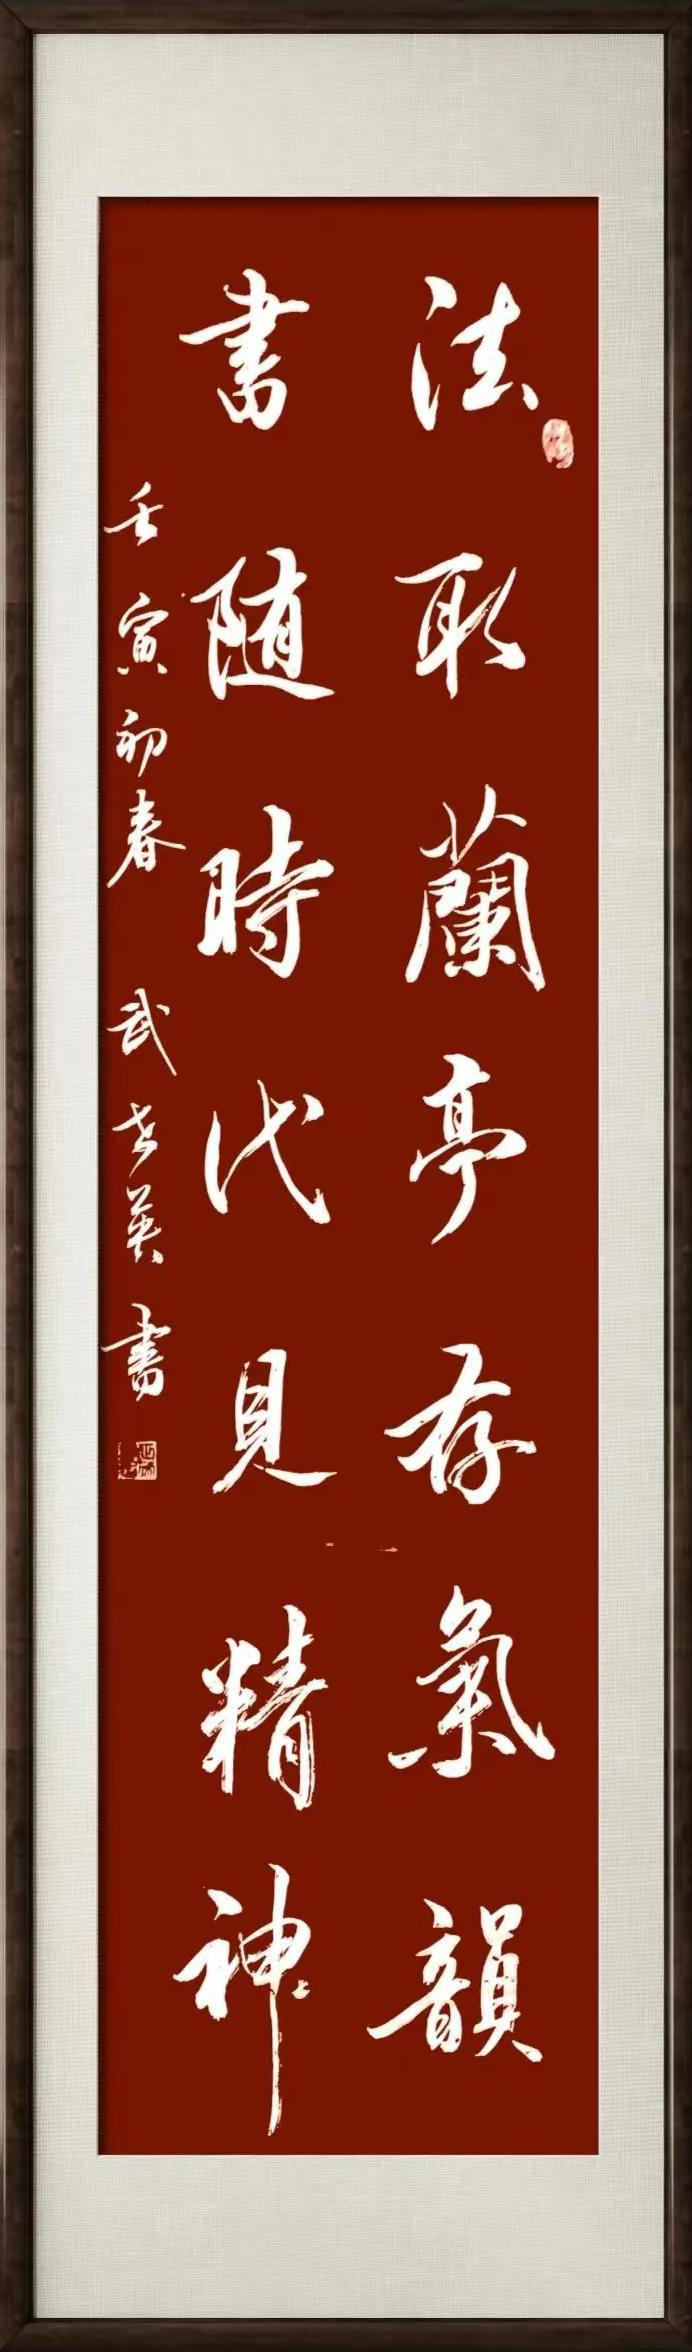 法取蘭亭存氣韻
書随時代見精神
壬寅初春 武英書